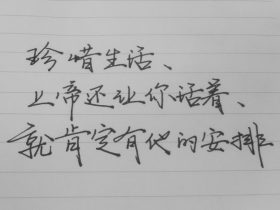 珍惜生活、
上帝还让你活着、
就肯定有他的安排